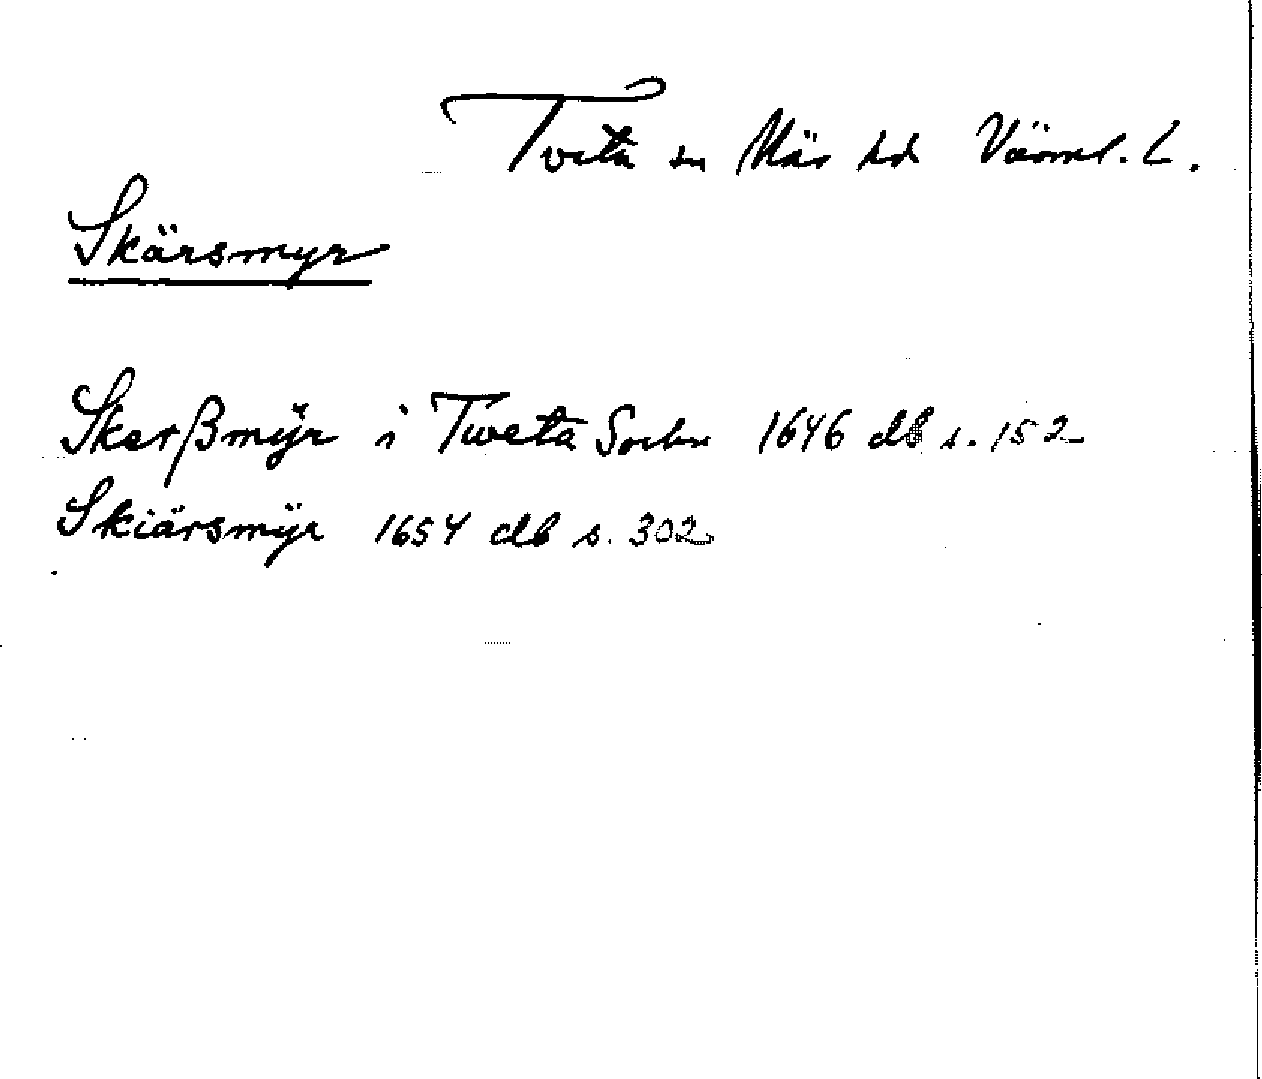 Tveta sn Näs hd Värml. L.
Skärsmyr
Skerßmÿr i Tweta Sochn 1646 db s. 152
Skiärsmÿr 1654 db s. 302